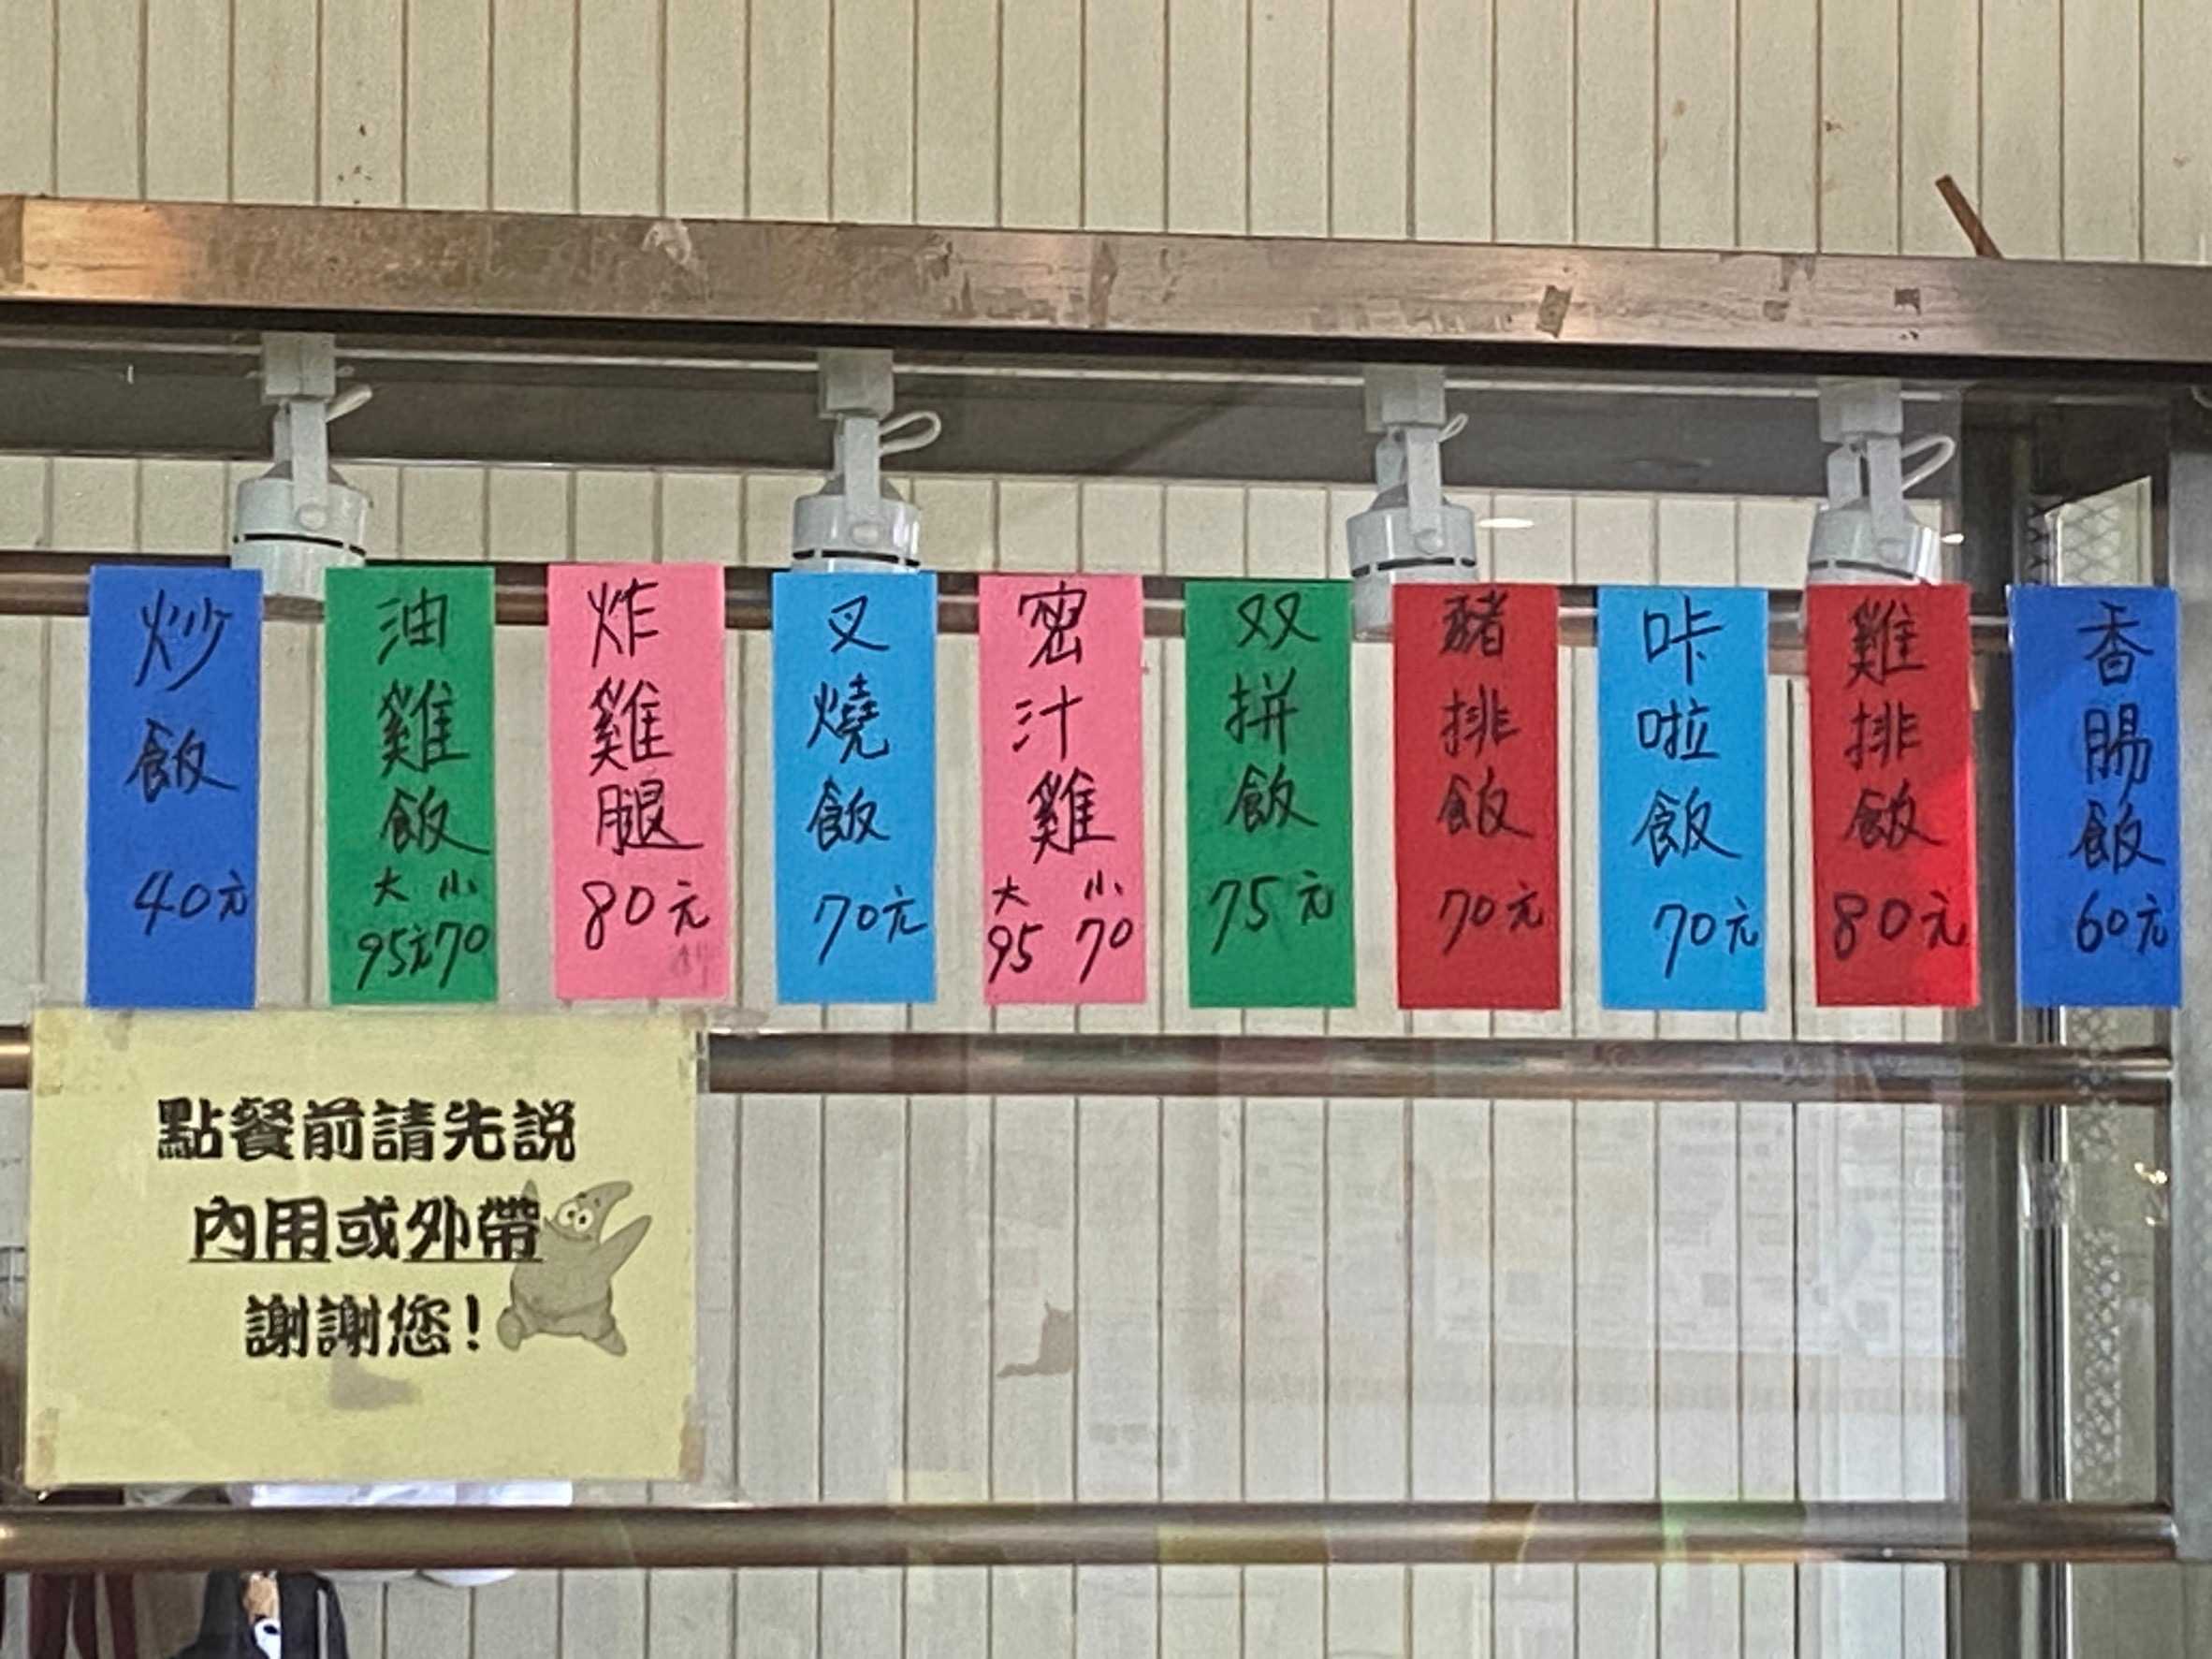 炒飯 40元
油雞飯 大95元 小70
炸雞腿 80元
叉燒飯 70元
密汁雞 大95 小70
双拼飯 75元
豬排飯 70元
咔啦飯 70元
雞排飯 80元
香腸飯 60元
點餐前請先說
內用或外帶
謝謝您!